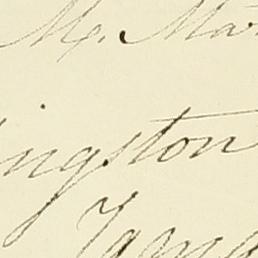 Mr. Mar
ingston
Jam